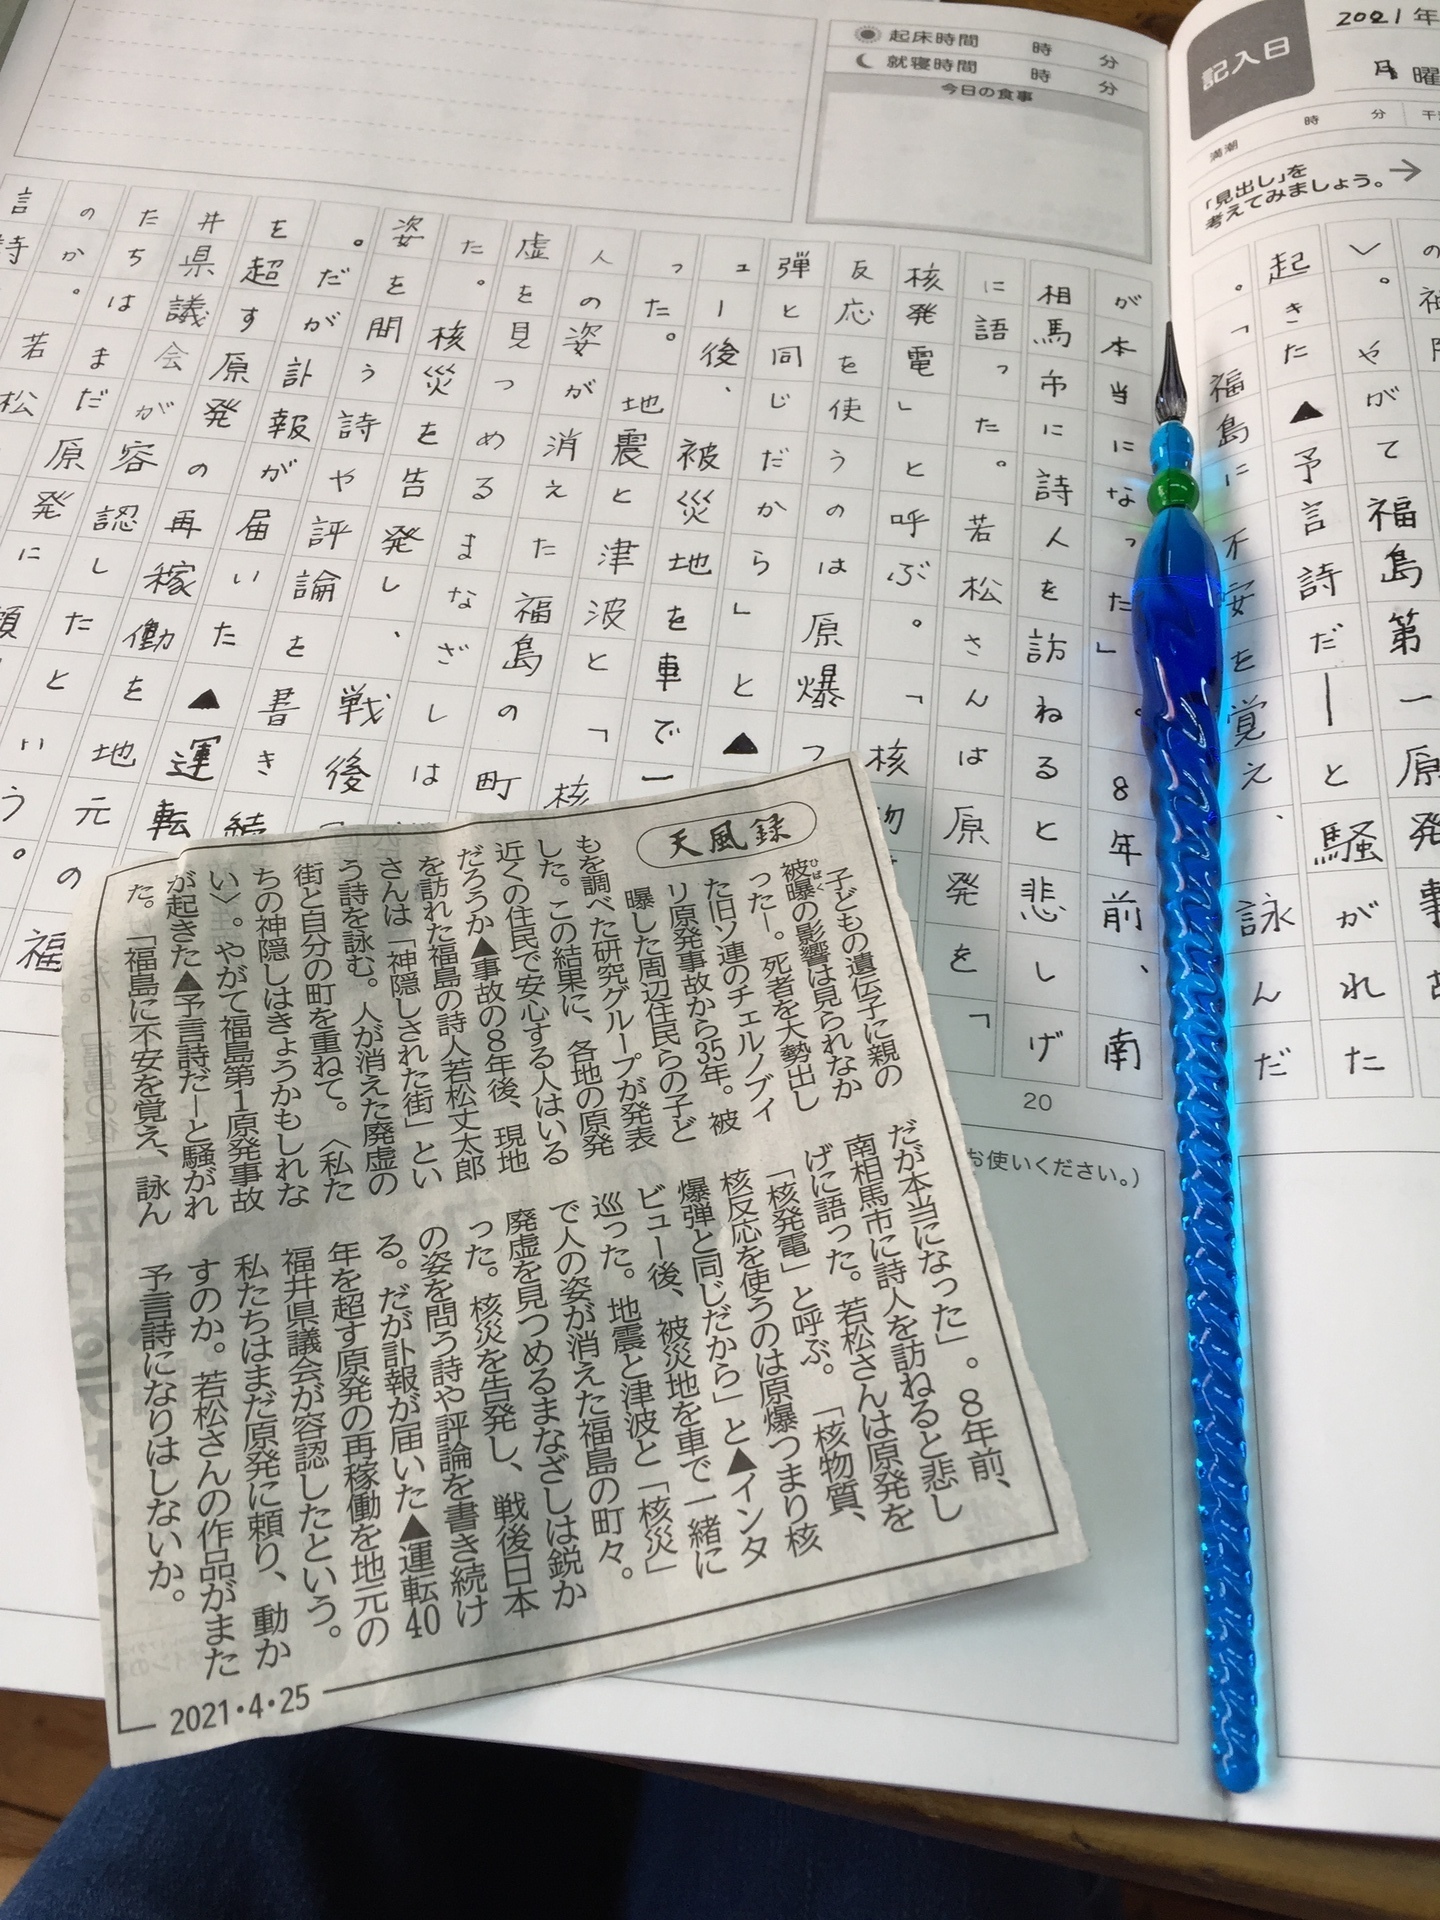 起床時間 時 分
就寝時間 時 分
今日の食事
記入日
2021年
月 曜
時 分
満潮
「見出し」を
考えてみましょう。→
〉。やがて福島第一原発事故
起きた▲予言詩だーと騒がれた
。「福島に不安を覚え、詠んだ
が本当になった」。8年前、南
相馬市に詩人を訪ねると悲しげ
に語った。若松さんは原発を「
核発電」と呼ぶ。「核物
反応を使うのは原爆つ
弾と同じだから」と▲
ュー後、被災地を車で一
った。地震と津波と「核
人の姿が消えた福島の町
虚を見つめるまなざしは
た。核災を告発し、戦後
姿を問う詩や評論を書き続
。だが訃報が届いた▲運転
を超す原発の再稼働を地元の福
井県議会が容認したという。
たちはまだ原発に頼
のか。若松
言詩
20
お使いください。）
天風録
子どもの遺伝子に親の
被曝の影響は見られなか
ひばく
ったー。死者を大勢出し
た旧ソ連のチェルノブイ
リ原発事故から35年。被
曝した周辺住民らの子ど
もを調べた研究グループが発表
した。この結果に、各地の原発
近くの住民で安心する人はいる
だろうか▲事故の8年後、現地
を訪れた福島の詩人若松丈太郎
さんは「神隠しされた街」とい
う詩を詠む。人が消えた廃虚の
街と自分の町を重ねて。〈私た
ちの神隠しはきょうかもしれな
い〉。やがて福島第1原発事故
が起きた▲予言詩だーと騒がれ
た。「福島に不安を覚え、詠ん
だが本当になった」。8年前、
南相馬市に詩人を訪ねると悲し
げに語った。若松さんは原発を
「核発電」と呼ぶ。「核物質、
核反応を使うのは原爆つまり核
爆弾と同じだから」と▲インタ
ビュー後、被災地を車で一緒に
巡った。地震と津波と「核災」
で人の姿が消えた福島の町々。
廃虚を見つめるまなざしは鋭か
った。核災を告発し、戦後日本
の姿を問う詩や評論を書き続け
る。だが訃報が届いた▲運転40
年を超す原発の再稼働を地元の
福井県議会が容認したという。
私たちはまだ原発に頼り、動か
すのか。若松さんの作品がまた
予言詩になりはしないか。
2021・4・25